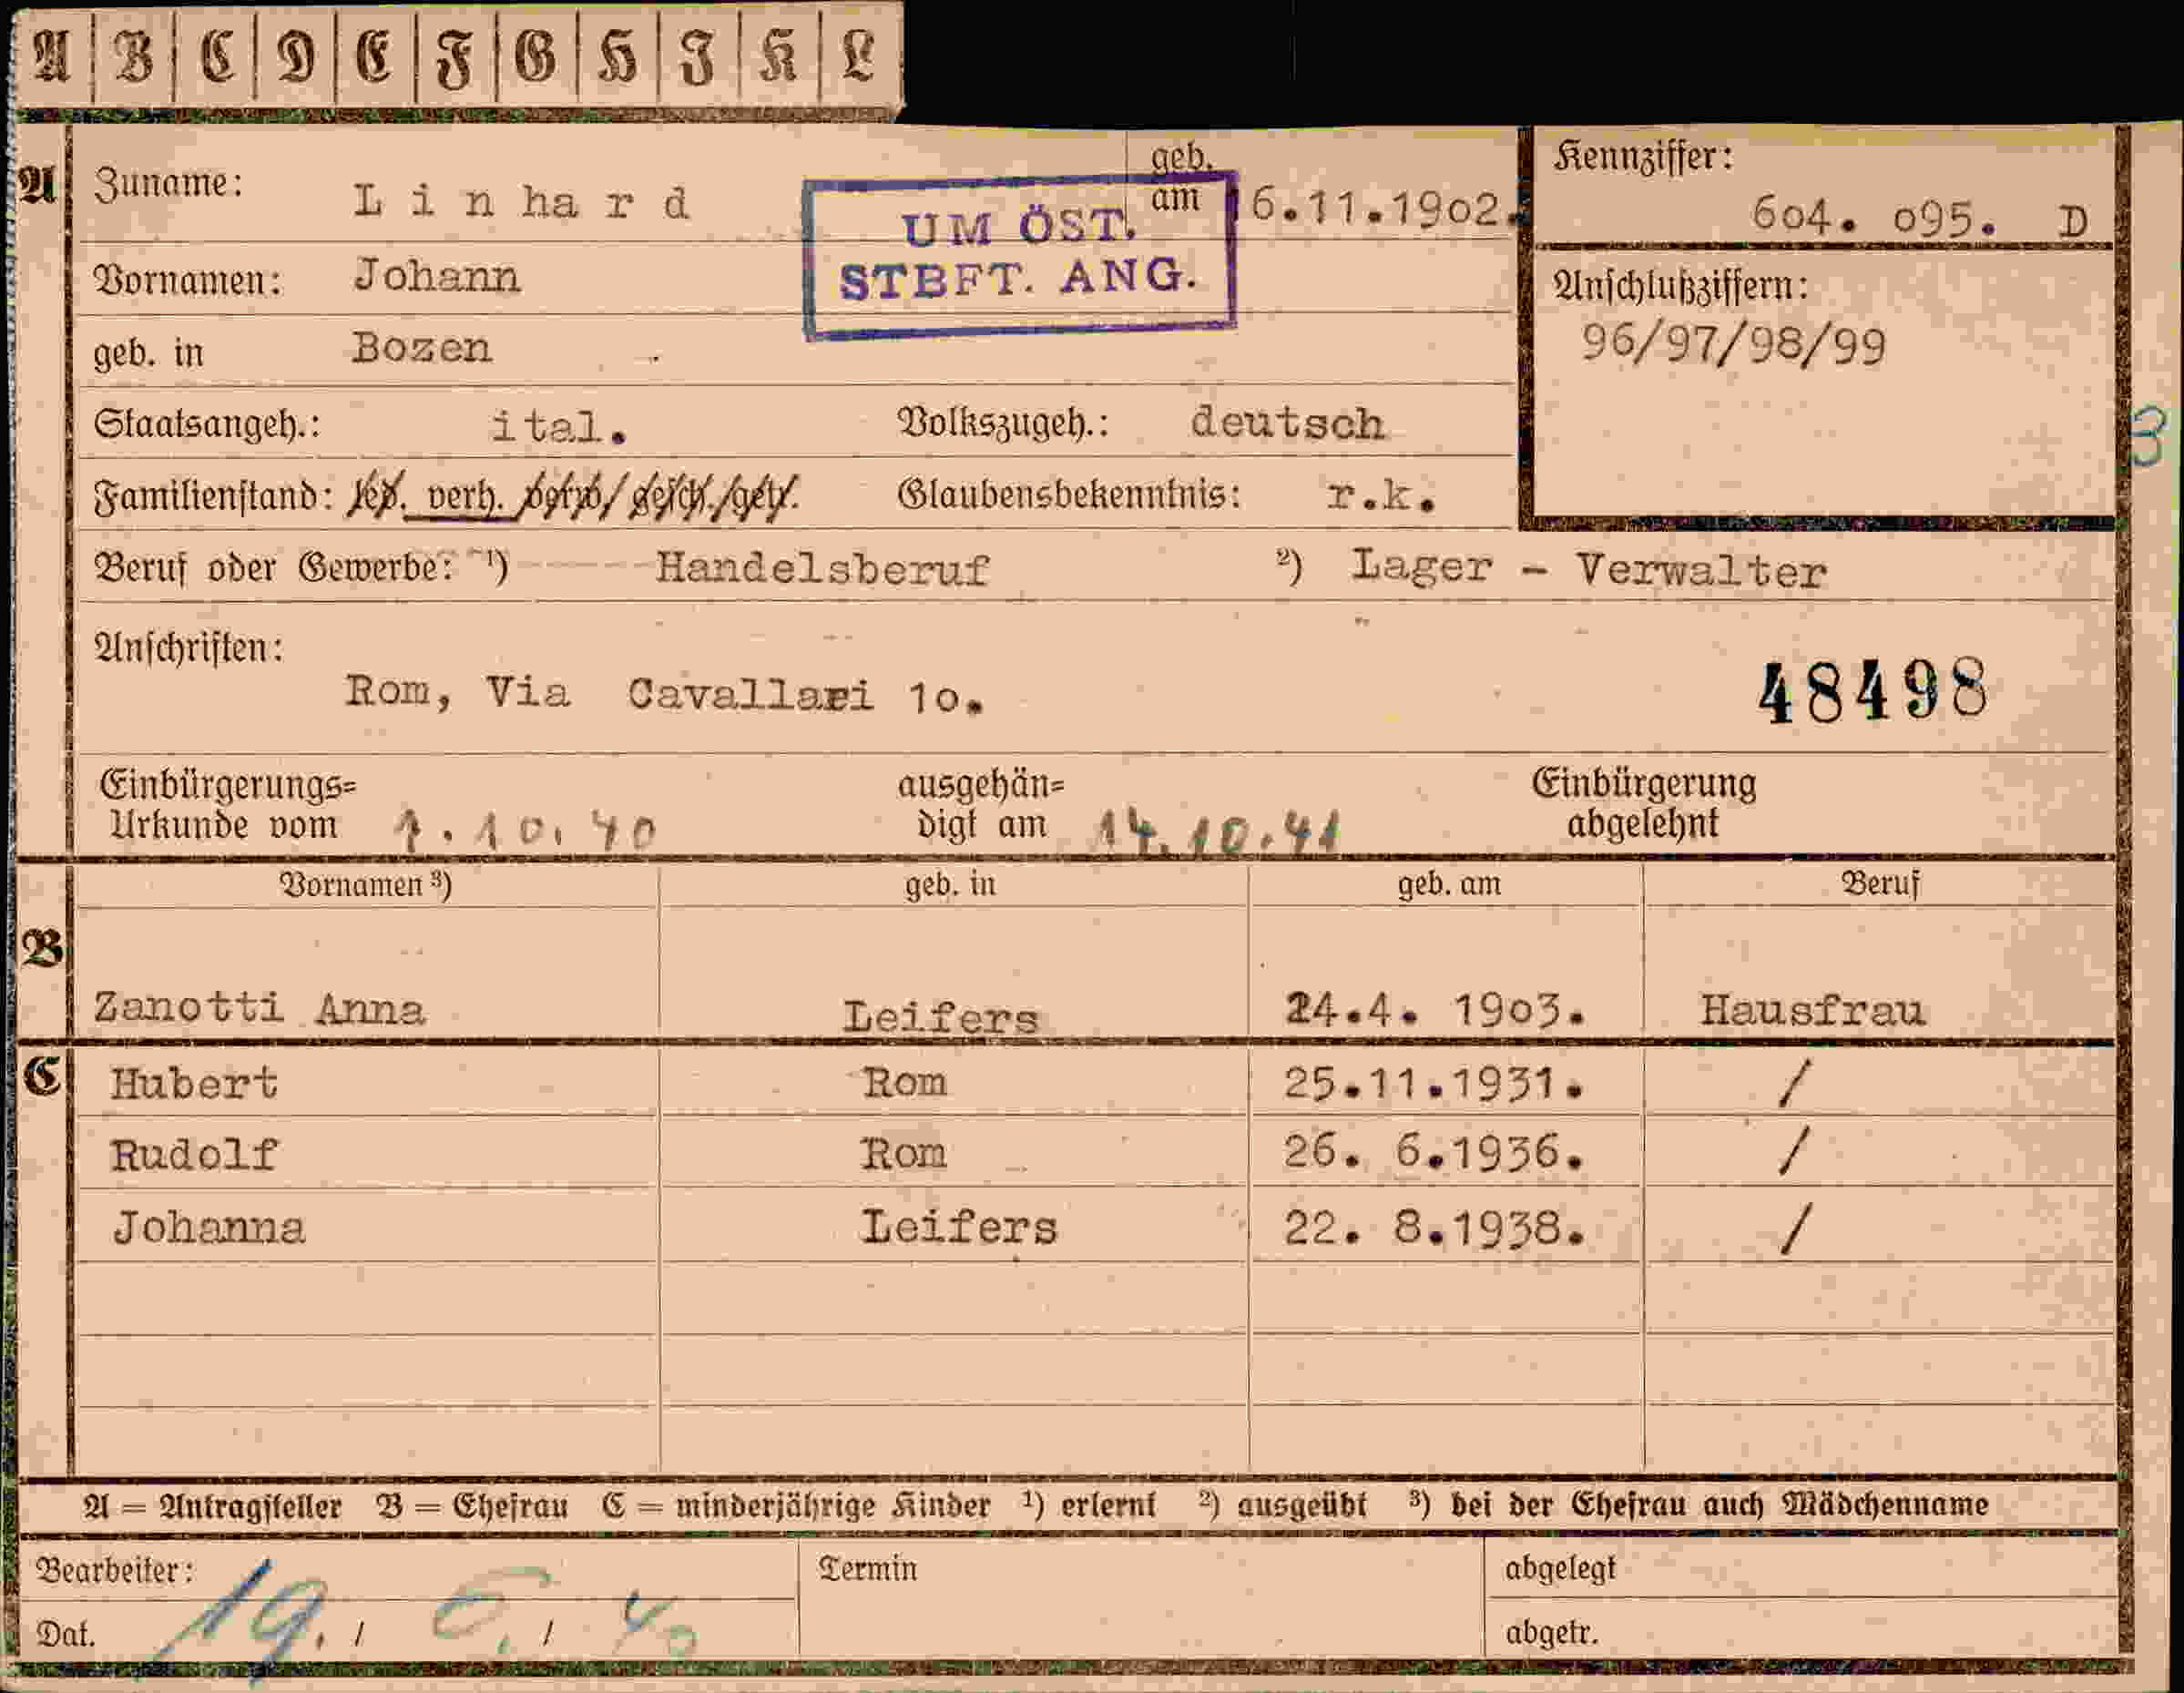 A B C D E F G H I K L
A Zuname: Linhard geb. am 16.11.1902.
UM ÖST.
STBFT. ANG.
Kennziffer:
604. 095. D
Vornamen: Johann
Anschlußziffern:
96/97/98/99
geb. in Bozen
Staatsangeh.: ital. Volkszugeh.: deutsch
3
Familienstand: led. verh. verw/ gesch./get. Glaubensbekenntnis: r.k.
Beruf oder Gewerbe: 1) Handelsberuf 2) Lager - Verwalter
Anschriften:
Rom, Via Cavallari 10.
48498
Einbürgerungs=
Urkunde vom 1.10.40
ausgehän=
digt am 14.10.41
Einbürgerung
abgelehnt
Vornamen 3) geb. in geb. am Beruf
B
Zanotti Anna Leifers 24.4. 1903. Hausfrau
C Hubert Rom 25.11.1931. /
Rudolf Rom 26. 6.1936. /
Johanna Leifers 22. 8.1938. /
A = Antragsteller B = Ehefrau C = minderjährige Kinder 1) erlernt 2) ausgeübt 3) bei der Ehefrau auch Mädchenname
Bearbeiter: Termin abgelegt
Dat. 19. / / 40 abgetr.